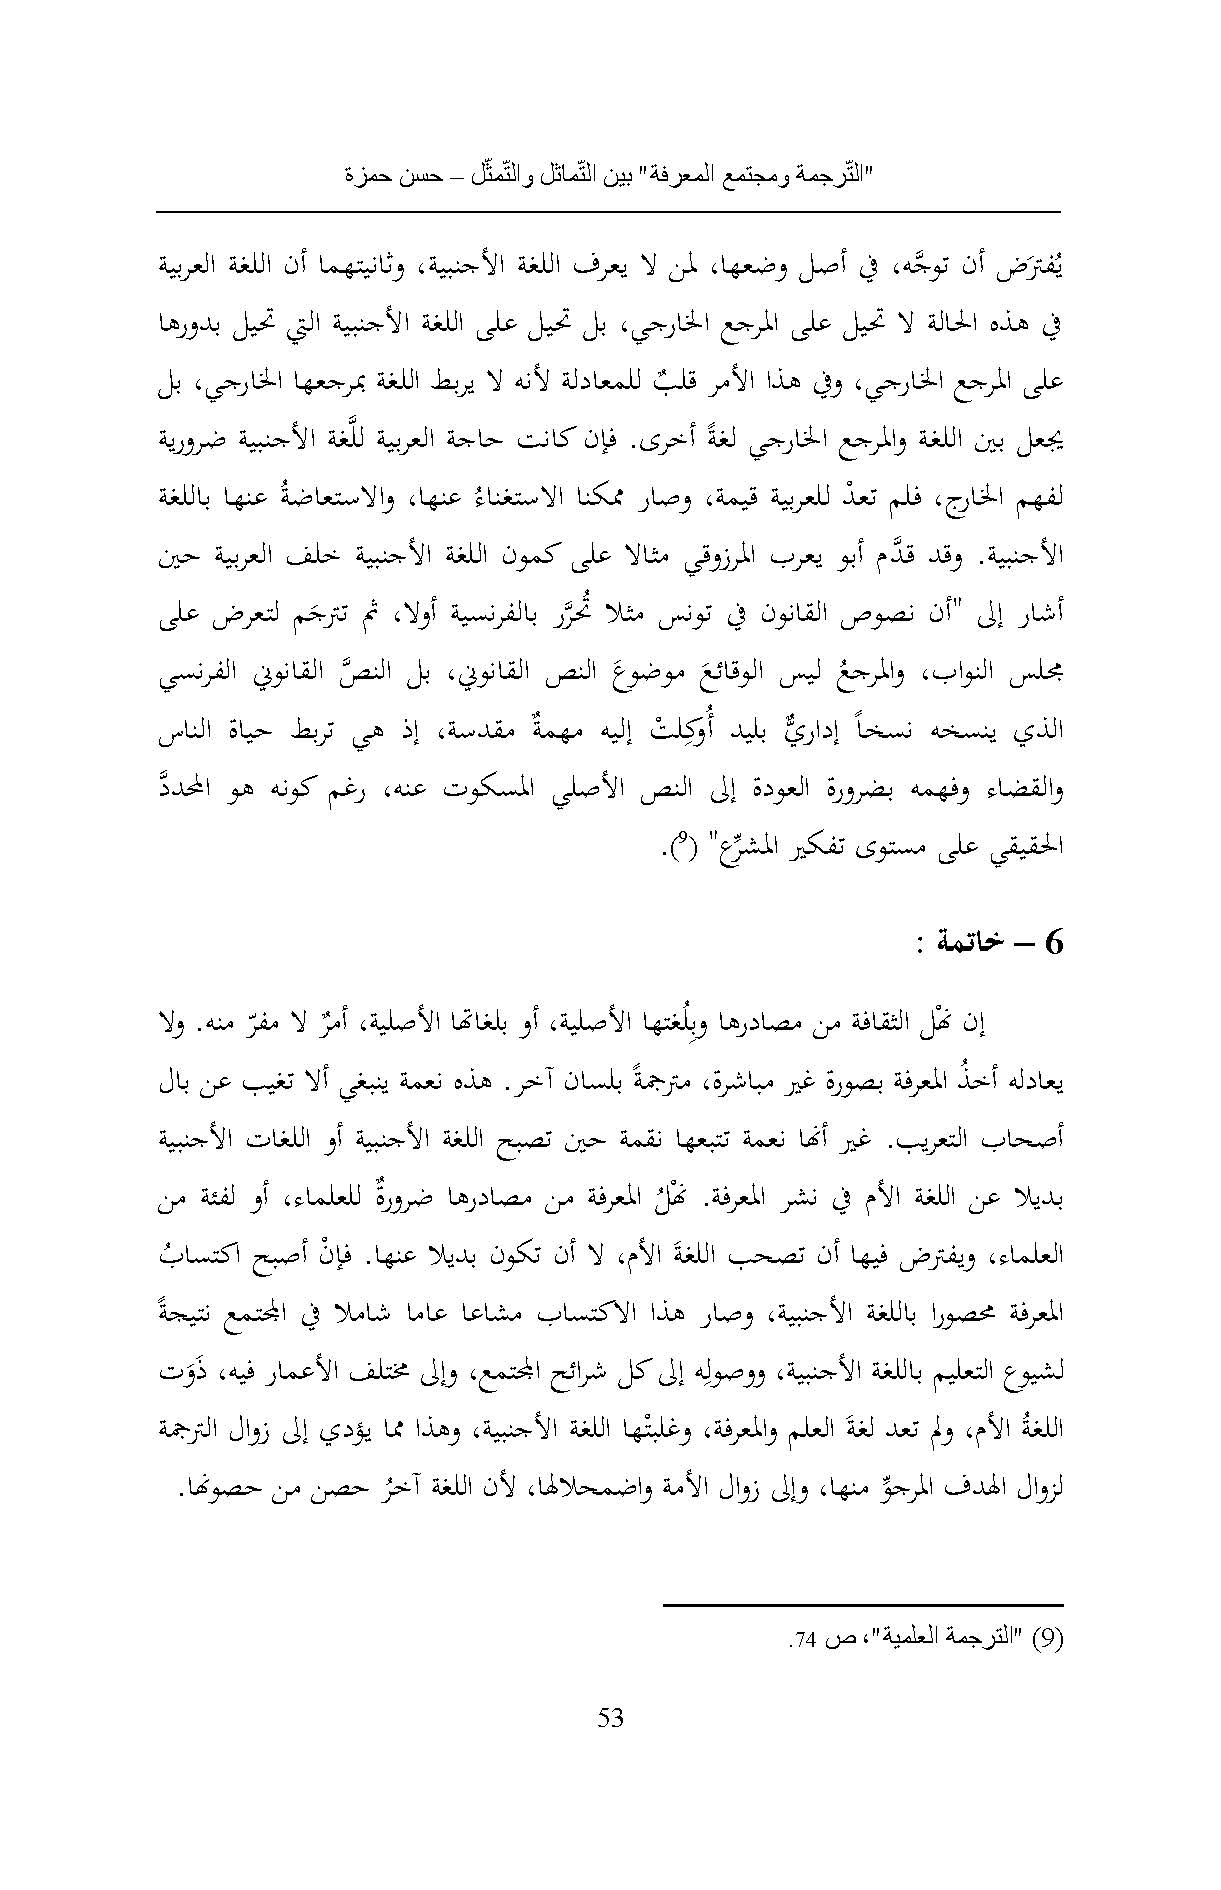 "التّرجمة ومجتمع المعرفة" بين التّماثل والتّمثّل – حسن حمزة
يُفتَرض أن توجَّه، في أصل وضعها، لمن لا يعرف اللغة الأجنبية، وثانيتهما أن اللغة العربية
في هذه الحالة لا تحيل على المرجع الخارجي، بل تحيل على اللغة الأجنبية التي تحيل بدورها
على المرجع الخارجي، وفي هذا الأمر قلبٌ للمعادلة لأنه لا يربط اللغة بمرجعها الخارجي، بل
يجعل بين اللغة والمرجع الخارجي لغةً أخرى. فإن كانت حاجة العربية للَّغة الأجنبية ضرورية
لفهم الخارج، فلم تعدْ للعربية قيمة، وصار ممكنا الاستغناءُ عنها، والاستعاضةُ عنها باللغة
الأجنبية. وقد قدَّم أبو يعرب المرزوقي مثالا على كمون اللغة الأجنبية خلف العربية حين
أشار إلى "أن نصوص القانون في تونس مثلا تُحرَّر بالفرنسية أولا، ثم تترجَم لتعرض على
مجلس النواب، والمرجعُ ليس الوقائعَ موضوعَ النص القانوني، بل النصَّ القانوني الفرنسي
الذي ينسخه نسخاً إداريٌّ بليد أُوكِلتْ إليه مهمةٌ مقدسة، إذ هي تربط حياة الناس
والقضاء وفهمه بضرورة العودة إلى النص الأصلي المسكوت عنه، رغم كونه هو المحدَّد
الحقيقي على مستوى تفكير المشرِّع" (9).
6 – خاتمة :
إن نهْل الثقافة من مصادرها وبِلُغتها الأصلية، أو بلغاتها الأصلية، أمرٌ لا مفرّ منه. ولا
يعادله أخذُ المعرفة بصورة غير مباشرة، مترجمةً بلسان آخر. هذه نعمة ينبغي ألا تغيب عن بال
أصحاب التعريب. غير أنها نعمة تتبعها نقمة حين تصبح اللغة الأجنبية أو اللغات الأجنبية
بديلا عن اللغة الأم في نشر المعرفة. نهْلُ المعرفة من مصادرها ضرورةٌ للعلماء، أو لفئة من
العلماء، ويفترض فيها أن تصحب اللغةَ الأم، لا أن تكون بديلا عنها. فإنْ أصبح اكتسابُ
المعرفة محصورا باللغة الأجنبية، وصار هذا الاكتساب مشاعا عاما شاملا في المجتمع نتيجةً
لشيوع التعليم باللغة الأجنبية، ووصولِه إلى كل شرائح المجتمع، وإلى مختلف الأعمار فيه، ذَوَت
اللغةُ الأم، ولم تعد لغةَ العلم والمعرفة، وغلبتْها اللغة الأجنبية، وهذا مما يؤدي إلى زوال الترجمة
لزوال الهدف المرجوِّ منها، وإلى زوال الأمة واضمحلالها، لأن اللغة آخرُ حصن من حصونها.
(9) "الترجمة العلمية"، ص 74.
53